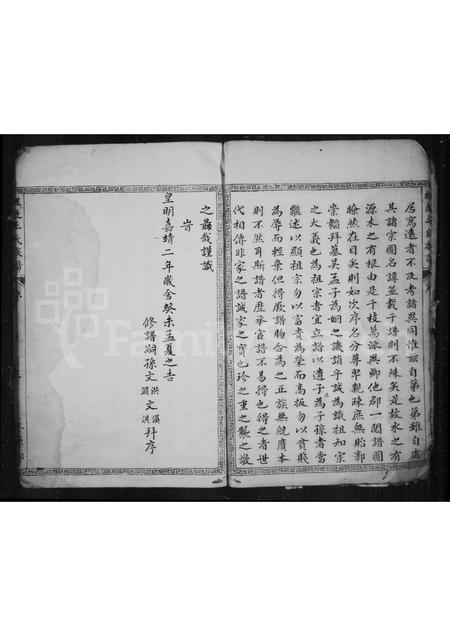 居寫遠者不及考諸異同惟兹自第也第雖自處
其諸宗圖名諱並載于譜則不殊矣是故水之有
源木之有根由是千枝萬派與鄉他郡一閱譜圖
瞭然在目矣則如次序名分尊卑親疎庶無貽郭
崇韜拜墓吴孟子為姻之譏誚乎誠為識祖知宗
之大義也為祖宗者宜立譜以遺子為子孫者當
繼述以顯祖宗勿以富貴為榮而高扳勿以貧賤
為辱而輕棄但得厥譜脗合為之正族無統賡本
則不然耳斯譜者歷承官譜不易得也得之者世
代相傳非家之譜誠家之寶也珍之重之襲之敬
之勗哉謹識
旹
皇明嘉靖二年歲舍癸未孟夏之吉
修譜嗣孫文洪 文溪
淵 洪 拜序
FamilySearch